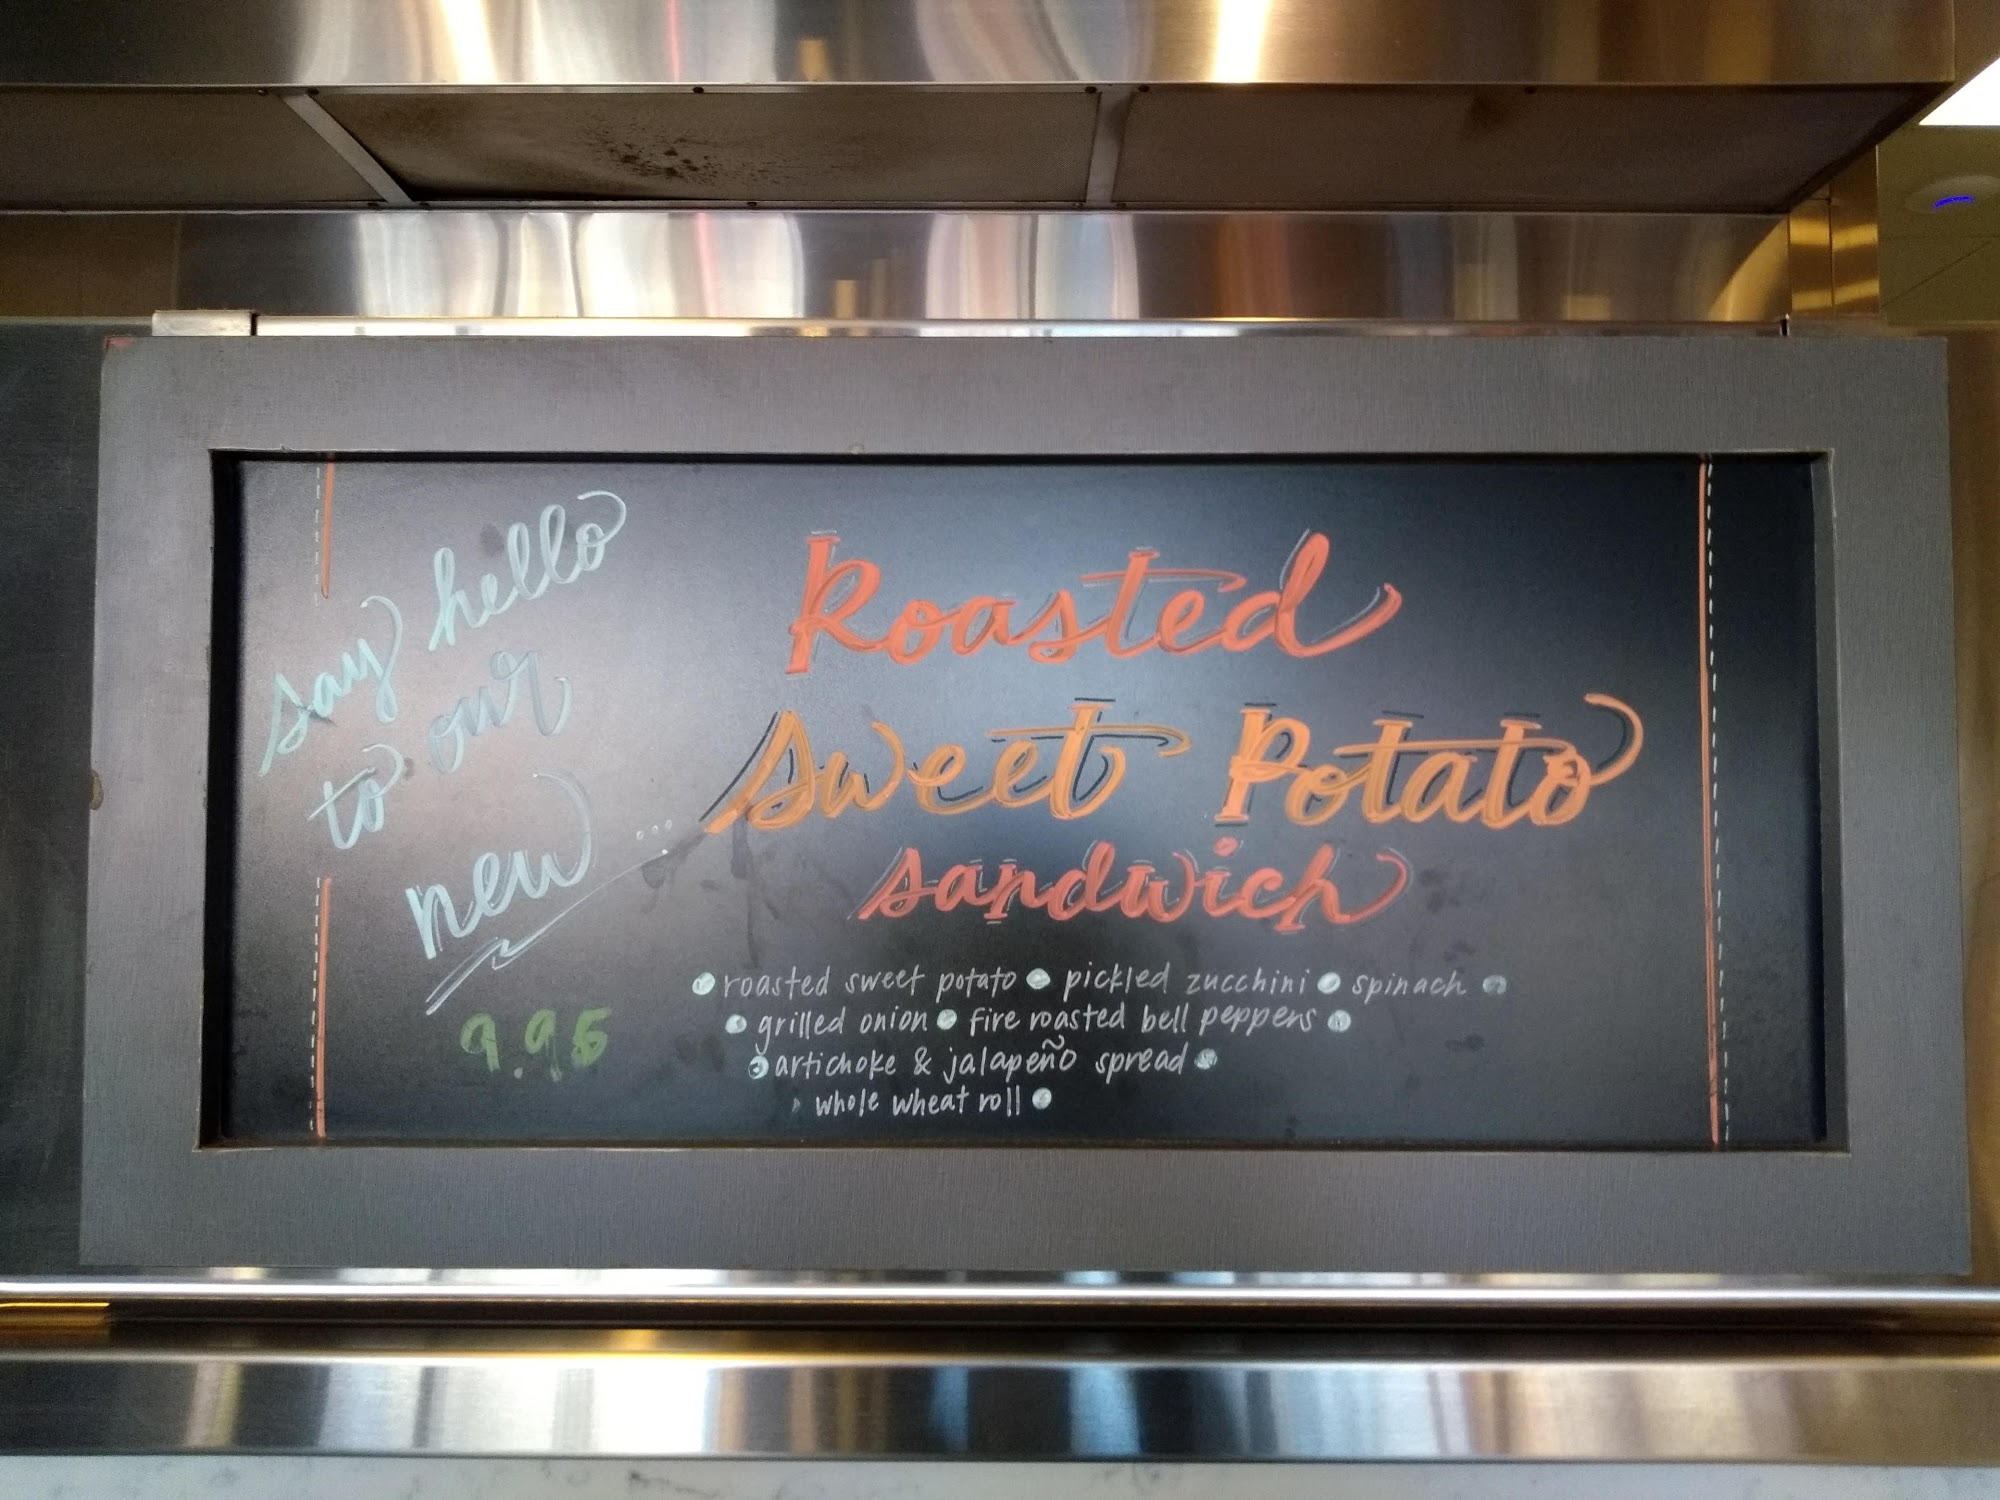 say hello
to our
new...
9.95
Roasted
Sweet Potato
sandwich
• roasted sweet potato • pickled zucchini • spinach •
• grilled onion • fire roasted bell peppers •
• artichoke & jalapeño spread •
• whole wheat roll •